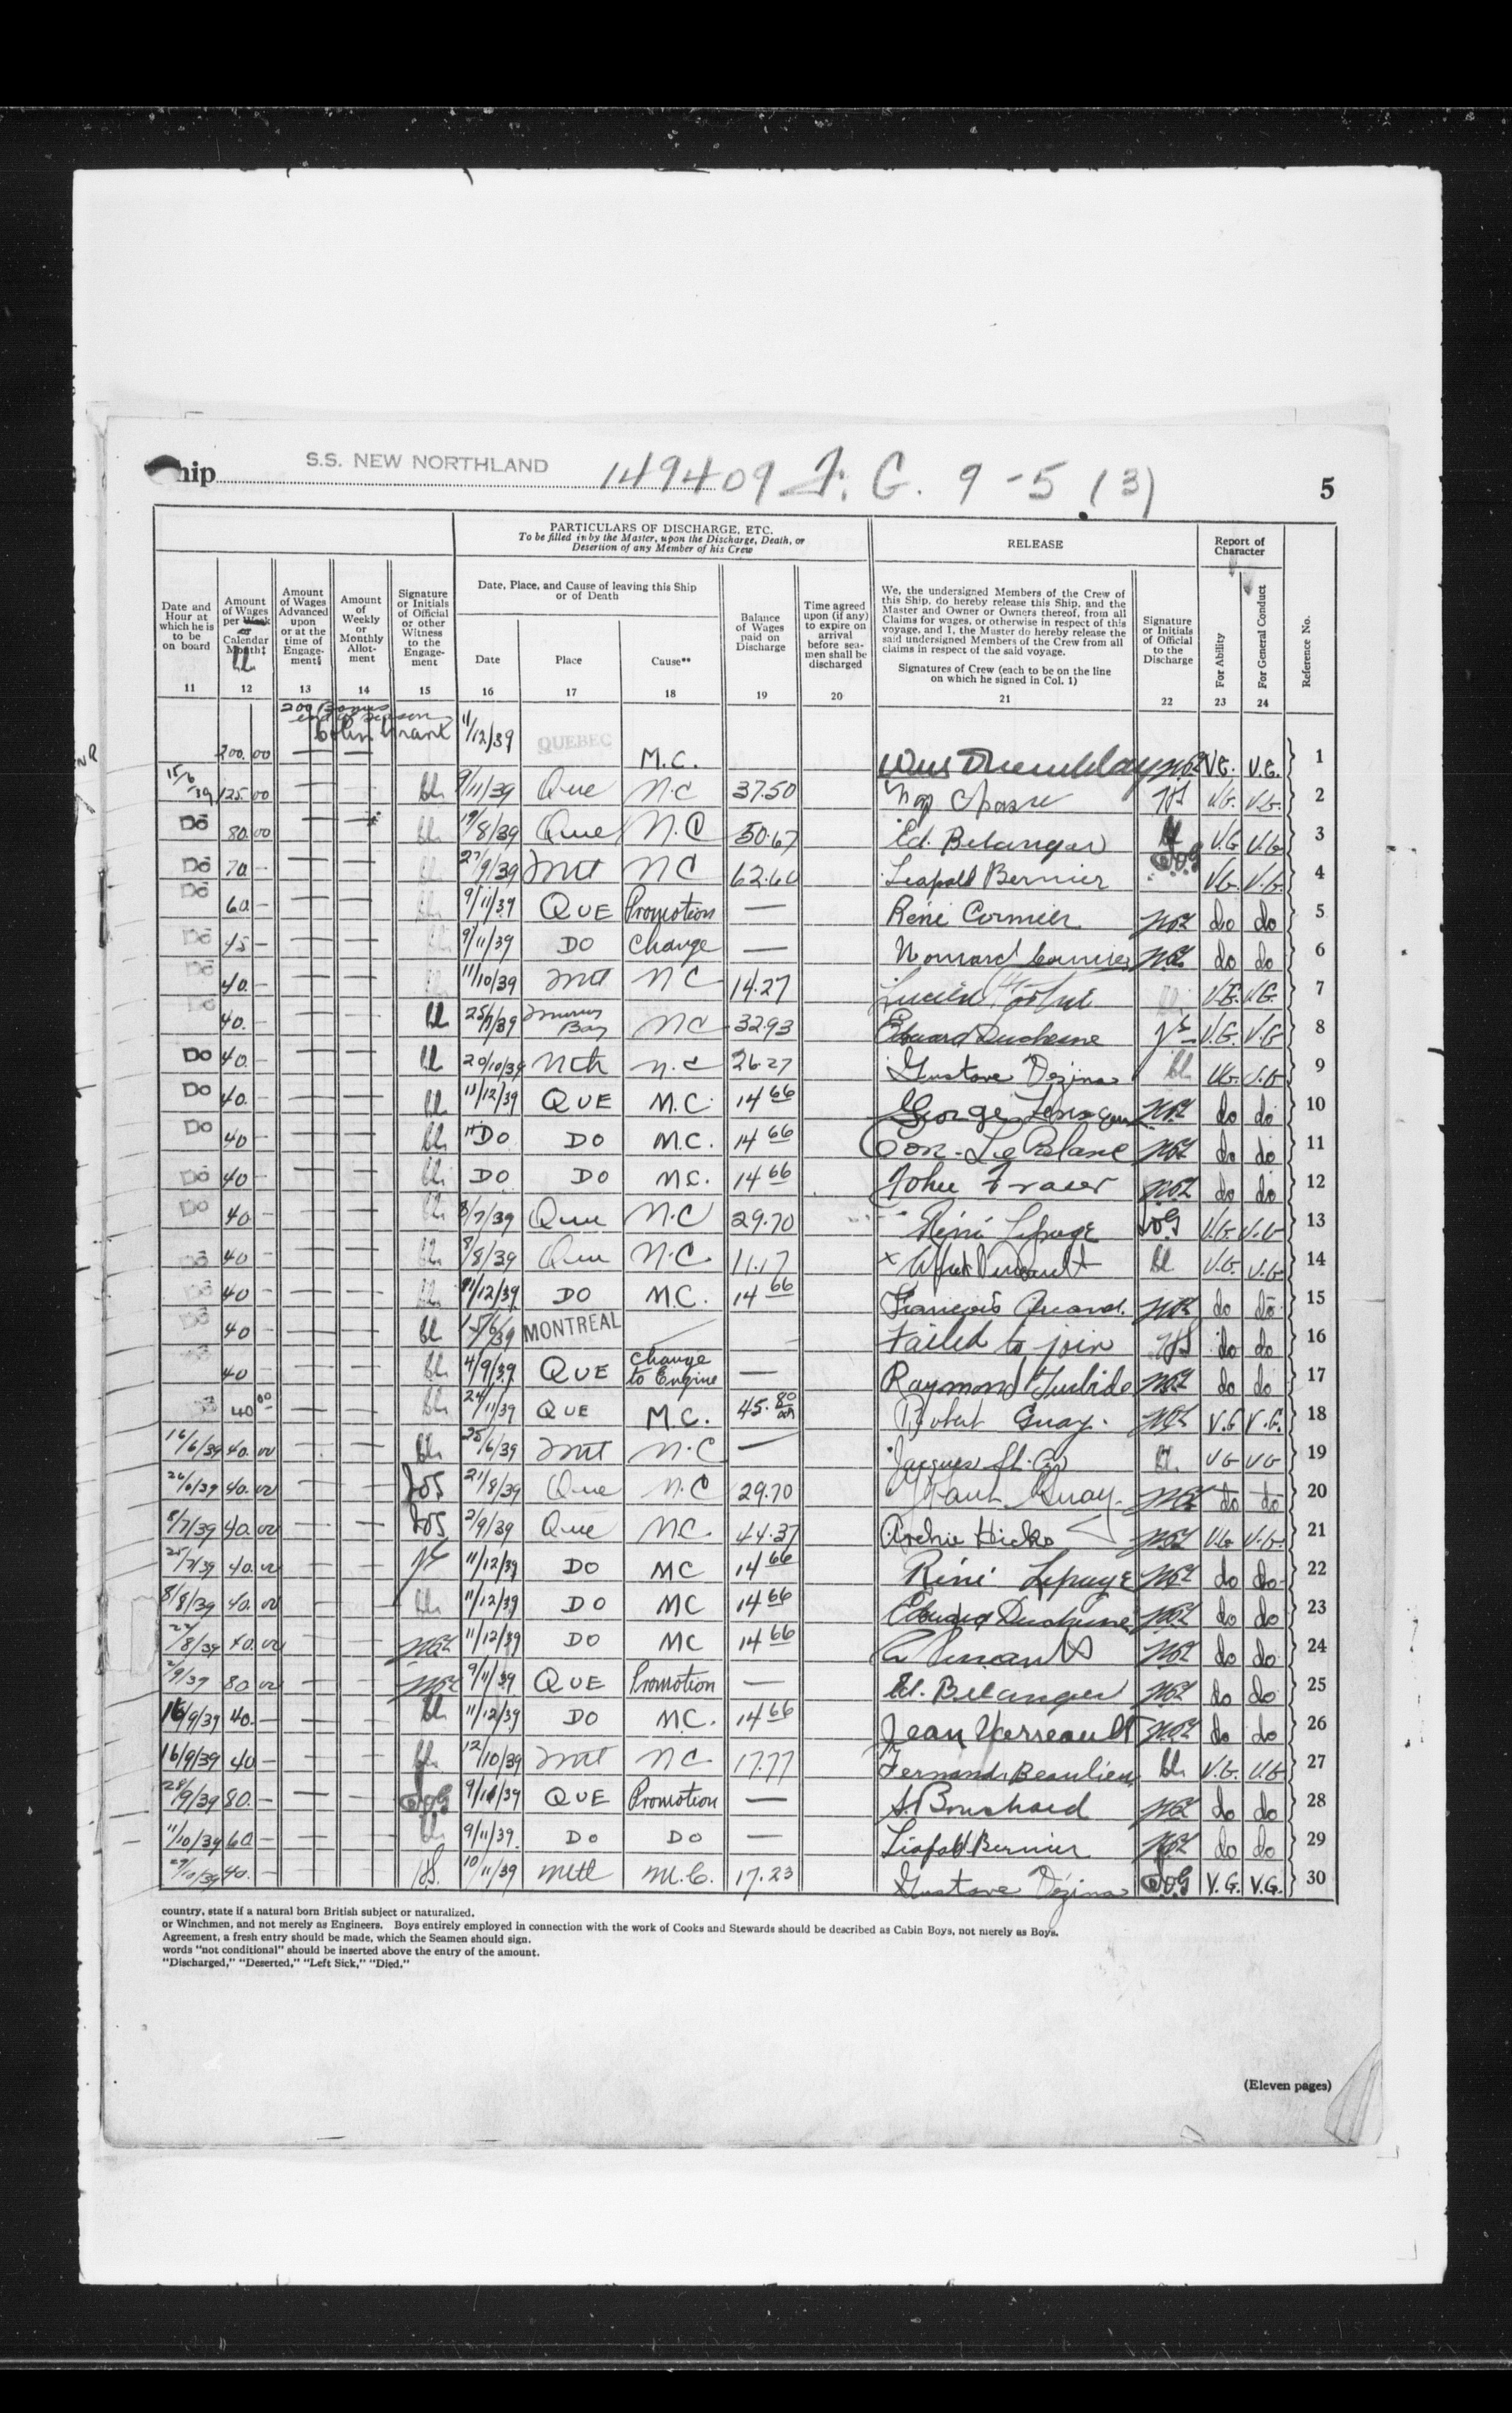 Ship S.S. NEW NORTHLAND 149409 F. G. 9-5 (3) 5
PARTICULARS OF DISCHARGE, ETC.
To be filled in by the Master, upon the Discharge, Death, or
Desertion of any Member of his Crew
RELEASE
Report of
Character
Date and
Hour at
which he is
to be
on board
Amount
of Wages
per Week
or
Calendar
Month‡
Amount
of Wages
Advanced
upon
or at the
time of
Engage-
ment§
Amount
of
Weekly
or
Monthly
Allot-
ment
Signature
or Initials
of Official
or other
Witness
to the
Engage-
ment
Date, Place, and Cause of leaving this Ship
or of Death
Date Place Cause**
Balance
of Wages
paid on
Discharge
Time agreed
upon (if any)
to expire on
arrival
before sea-
men shall be
discharged
We, the undersigned Members of the Crew of
this Ship, do hereby release this Ship, and the
Master and Owner or Owners thereof, from all
Claims for wages, or otherwise in respect of this
voyage, and I, the Master do hereby release the
said undersigned Members of the Crew from all
claims in respect of the said voyage.
Signatures of Crew (each to be on the line
on which he signed in Col. 1)
Signature
or Initials
of Official
to the
Discharge
For Ability
For General Conduct
Reference No.
11 12 13 14 15 16 17 18 19 20 21 22 23 24
200 Bonus
end of season
200.00 — — 11/12/39 QUEBEC M.C. Tremblay V.G. V.G. 1
15/6/39 125.00 — — 9/11/39 Que N.C 37.50 Chasse V.G. V.G. 2
Do 80.00 — — 19/8/39 Que N.C 50.67 Ed. Belanger V.G V.G 3
Do 70 — — — 27/9/39 Mtl N C 62.60 Leopold Bernier V.G. V.G. 4
Do 60 — — — 9/11/39 QUE Promotion — René Cormier do do 5
Do 45 — — — 9/11/39 DO Change — do do 6
Do 40. — — — 11/10/39 Mtl N C 14.27 Lucien V.G. V.G. 7
Do 40. — — 25/7/39 Murray Bay N C 32.93 Edward Duchesne V.G. V.G 8
Do 40. — — — 20/10/39 Mtl N.C 26.27 Gustave Dezina V.G. V.G 9
Do 40. — — — 11/12/39 QUE M.C. 14 66 George do do 10
Do 40 — — — DO DO M.C. 14 66 Le Blanc do do 11
Do 40 — — — DO DO M.C. 14 66 John Fraser do do 12
Do 40 — — — 8/7/39 Que N.C 29.70 Réni Lepage V.G. V.G 13
Do 40 — — — 8/8/39 Que N.C. 11.17 V.G. V.G. 14
Do 40 — — — 11/12/39 DO M.C. 14 66 François do do 15
Do 40 — — 15/6/39 MONTREAL Failed to join do do 16
40 — — — 4/9/39 QUE Change to Engine — Raymond Turbide do do 17
40 00 — — 24/11/39 QUE M.C. 45.80 Robert Guay. V.G V.G. 18
16/6/39 40.00 — 25/6/39 Mtl N.C — Jacques V G V G 19
26/6/39 40.00 — — 21/8/39 Que N.C 29.70 Paul Guay. do do 20
8/7/39 40.00 — — 2/9/39 Que N.C. 44.37 Archie Hicks V.G V.G. 21
25/7/39 40.00 — — 11/12/39 DO MC 14 66 Réni Lepage do do 22
8/8/39 40.00 — — 11/12/39 DO MC 14 66 Edward Duchesne do do 23
24/8/39 40.00 — — 11/12/39 DO MC 14 66 do do 24
2/9/39 80 00 — — 9/11/39 QUE Promotion — Ed. Belanger do do 25
16/9/39 40. — — — 11/12/39 DO M.C. 14 66 Jean Verreault do do 26
16/9/39 40 — — — 12/10/39 Mtl N C 17.77 Fernand Beaulieu V.G. V.G 27
28/9/39 80. — — — 9/11/39 QUE Promotion — S. Bouchard do do 28
11/10/39 60 — — — 9/11/39. DO DO — Léopold Bernier do do 29
29/10/39 40. — — — 10/11/39 Mtl M.C. 17.23 Gustave Dézina V.G. V.G. 30
country, state if a natural born British subject or naturalized.
or Winchmen, and not merely as Engineers. Boys entirely employed in connection with the work of Cooks and Stewards should be described as Cabin Boys, not merely as Boys.
Agreement, a fresh entry should be made, which the Seamen should sign.
words "not conditional" should be inserted above the entry of the amount.
"Discharged," "Deserted," "Left Sick," "Died."
(Eleven pages)